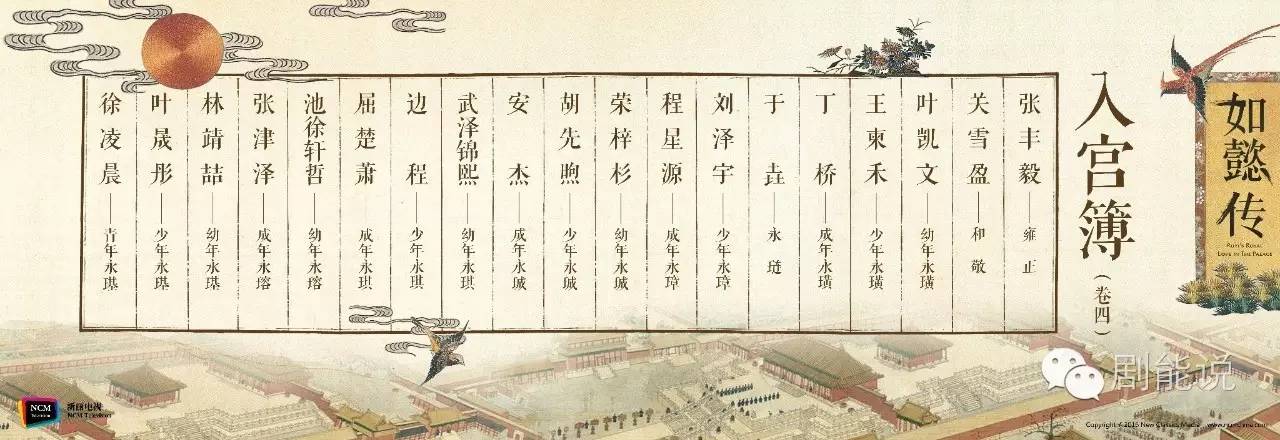 如懿传
RUYI'S ROYAL
LOVE IN THE PALACE
入宫簿(卷四)
张丰毅——雍正
关雪盈——和敬
叶凯文——幼年永璜
王柬禾——少年永璜
丁桥——成年永璜
于垚——永琏
刘泽宇——少年永璋
程星源——成年永璋
荣梓杉——幼年永珹
胡先煦——少年永珹
安杰——成年永珹
武泽锦熙——幼年永琪
边程——少年永琪
屈楚萧——成年永琪
池徐轩哲——幼年永瑢
张津泽——成年永瑢
林靖喆——幼年永璂
叶晟彤——少年永璂
徐凌晨——青年永璂
剧能说
NCM
Television
新丽电视
NCM Television
Copyright © 2016 New Classics Media